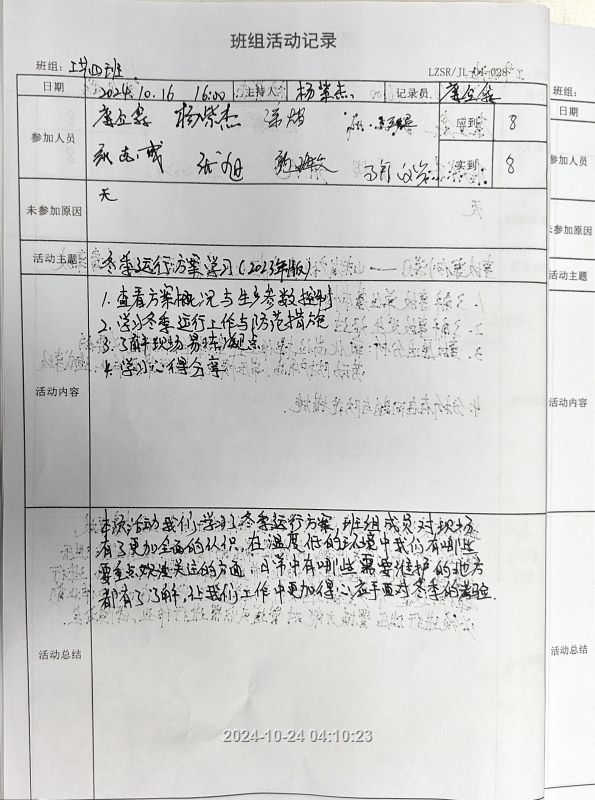 班组活动记录
班组：
LZSR/JL-04-028
日期 2024.10.16 16:00 主持人 杨紫杰 记录员
参加人员 杨紫杰 应到 8
实到 8
未参加原因 无
活动主题 冬季运行方案学习(2023年版)
活动内容
1. 查看方案概况与生产参数控制
2. 学习冬季运行工作与防范措施
3. 了解现场易冻凝点
4. 学习心得分享
活动总结
本次活动我们学习了冬季运行方案，班组成员对现场
有了更加全面的认识，在温度低的环境中我们有哪些
要重点关注的方面，日常中有哪些需要维护的地方
都有了了解，让我们工作中更加得心应手面对冬季的考验.
2024-10-24 04:10:23
班组：
日期
参加人员
未参加原因
活动主题
活动内容
活动总结